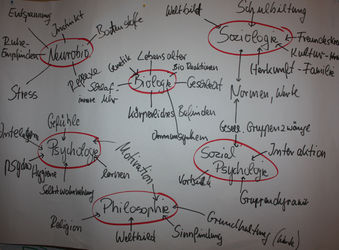 Entspannung
Instinkt
Botenstoffe
Ruhe-
Empfinden
Neurobio
Stress
Weltbild
Schulbildung
Soziologie
Freundeskreis
Kultur-
Herkunft - Familie
Normen, Werte
Genetik
Lebensalter
Bio Reaktionen
Reflexe
Schlaf
innere Uhr
Biologie
Geschlecht
Körperliches Befinden
Immunsystem
Gefühle
Psychologie
Hygiene
lernen
Selbstwahrnehmung
Motivation
Gruppenzwänge
Sozial
Psychologie
Interaktion
Vorbilder
Gruppendynamik
Philosophie
Religion
Weltbild
Sinnfindung
Grundhaltung